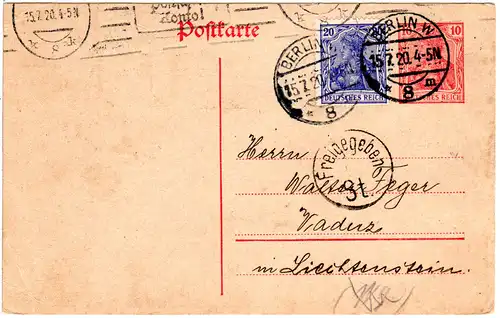 15.7.20. 4-5N
8
Konto!
Postkarte
BERLIN W
15.7.20.
* 8
20
DEUTSCHES REICH
BERLIN W
15.7.20. 4-5N
* 8 m
10
Freigegeben
3t.
Herrn
Walter Feger
Vaduz
in Liechtenstein.